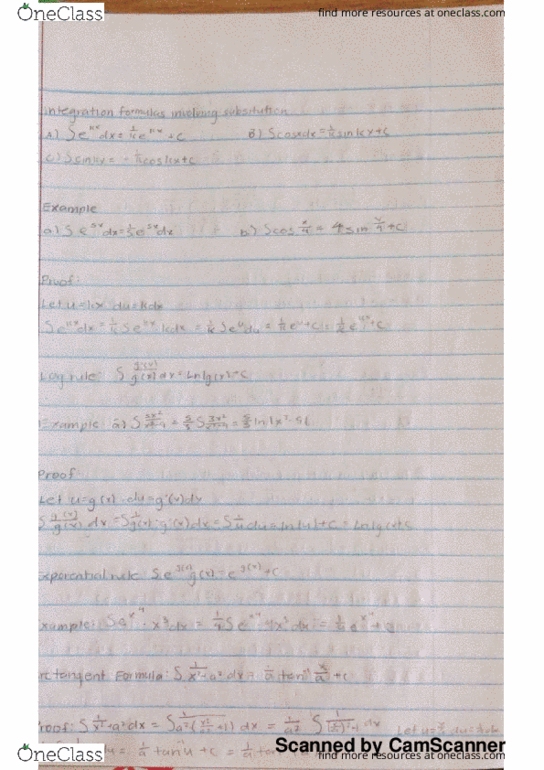 OneClass find more resources at oneclass.com
integration formulas involving substitution
A) ∫e^{kx}dx = 1/k e^{kx} + c   B) ∫coskxdx = 1/k sin kx + c
c) ∫sinkx = - 1/k cos kx + c
Example
a) ∫e^{5x}dx = 1/5 e^{5x}dx   b) ∫cos x/4 = 4 sin x/4 + C
Proof:
Let u=kx du=kdx
∫e^{kx}dx = 1/k ∫e^{kx} kdx = 1/k ∫e^u du = 1/k e^u + c = 1/k e^{kx} + c
Log rule: ∫ g'(x)/g(x) dx = ln|g(x)| + C
Example: a) ∫
Proof
Let u=g(x) du=g'(x)dx
∫ g'(x)/g(x) dx = ∫ 1/g(x) · g'(x) dx = ∫ 1/u du = ln|u| + C = Ln
xponential rule: ∫e^{g(x)} g'(x) = e^{g(x)} + C
xample: ∫e^{x^4} · x^3 dx = 1/4 ∫e^{x^4} 4x^3 dx = 1/4 e^{x^4} +
rctangent Formula: ∫ 1/x²+a² dx = 1/a tan^{-1} x/a + c
roof: ∫ 1/x²+a² dx = ∫ 1/a²(x²/a²+1) dx = 1/a² ∫ dx Let u=
du = 1/a tan u + C = 1/a
Scanned by CamScanner
OneClass find more resources at oneclass.com